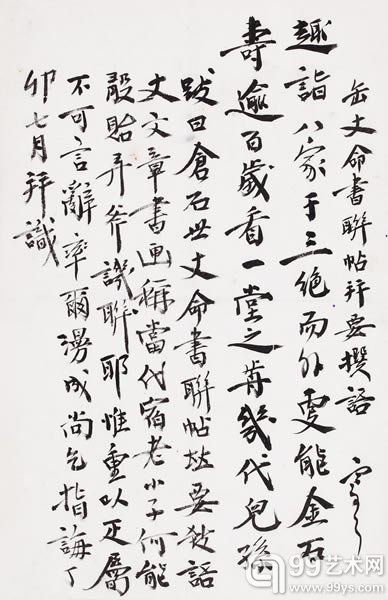 缶丈命書聯帖并要撰語
趣詣八家于三絶而外更能金石
壽逾百歲看一堂之前幾代兒孫
跋曰倉石世丈命書聯帖並要撰語
丈文章書画稱當代宿老小子何能
貽弄斧譏聯耶惟重以疋屬
不可言辭率爾漫成尚乞指誨丁
卯七月拜識
99艺术网
www.99ys.com